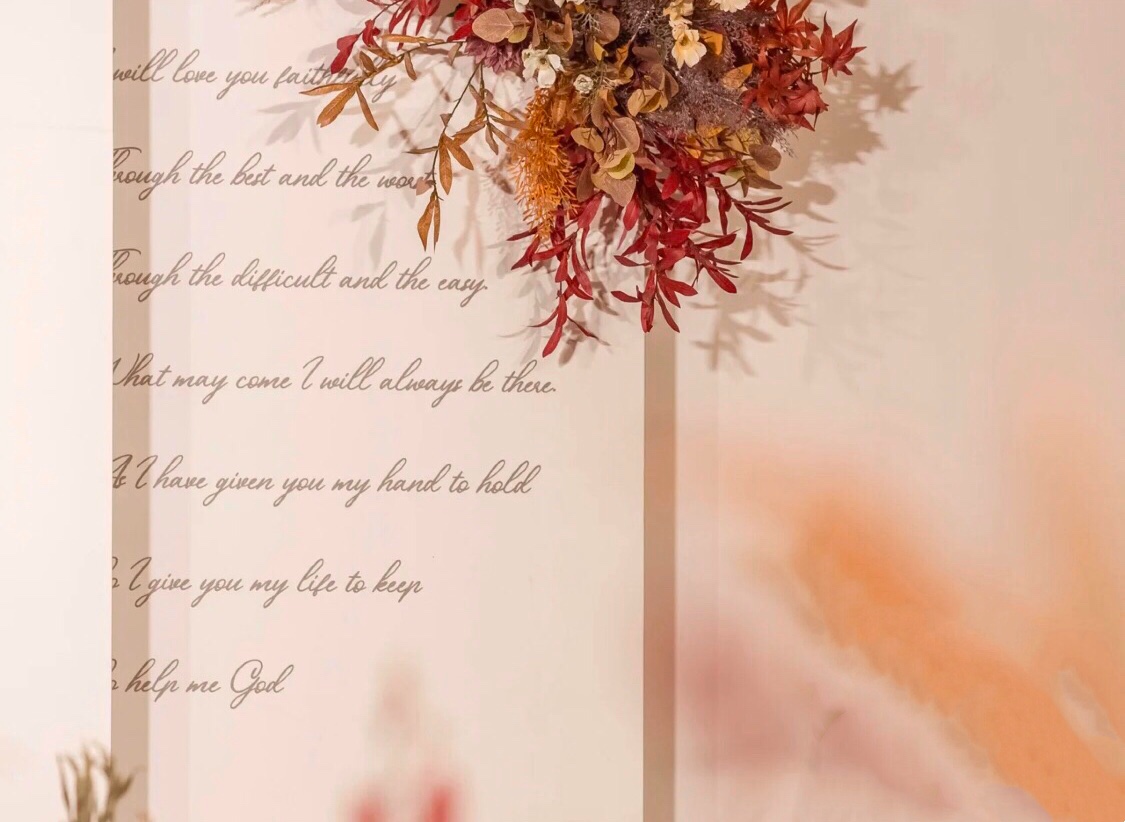 will love you faithfully
rough the best and the worst
rough the difficult and the easy.
What may come I will always be there.
As I have given you my hand to hold
I give you my life to keep
help me God